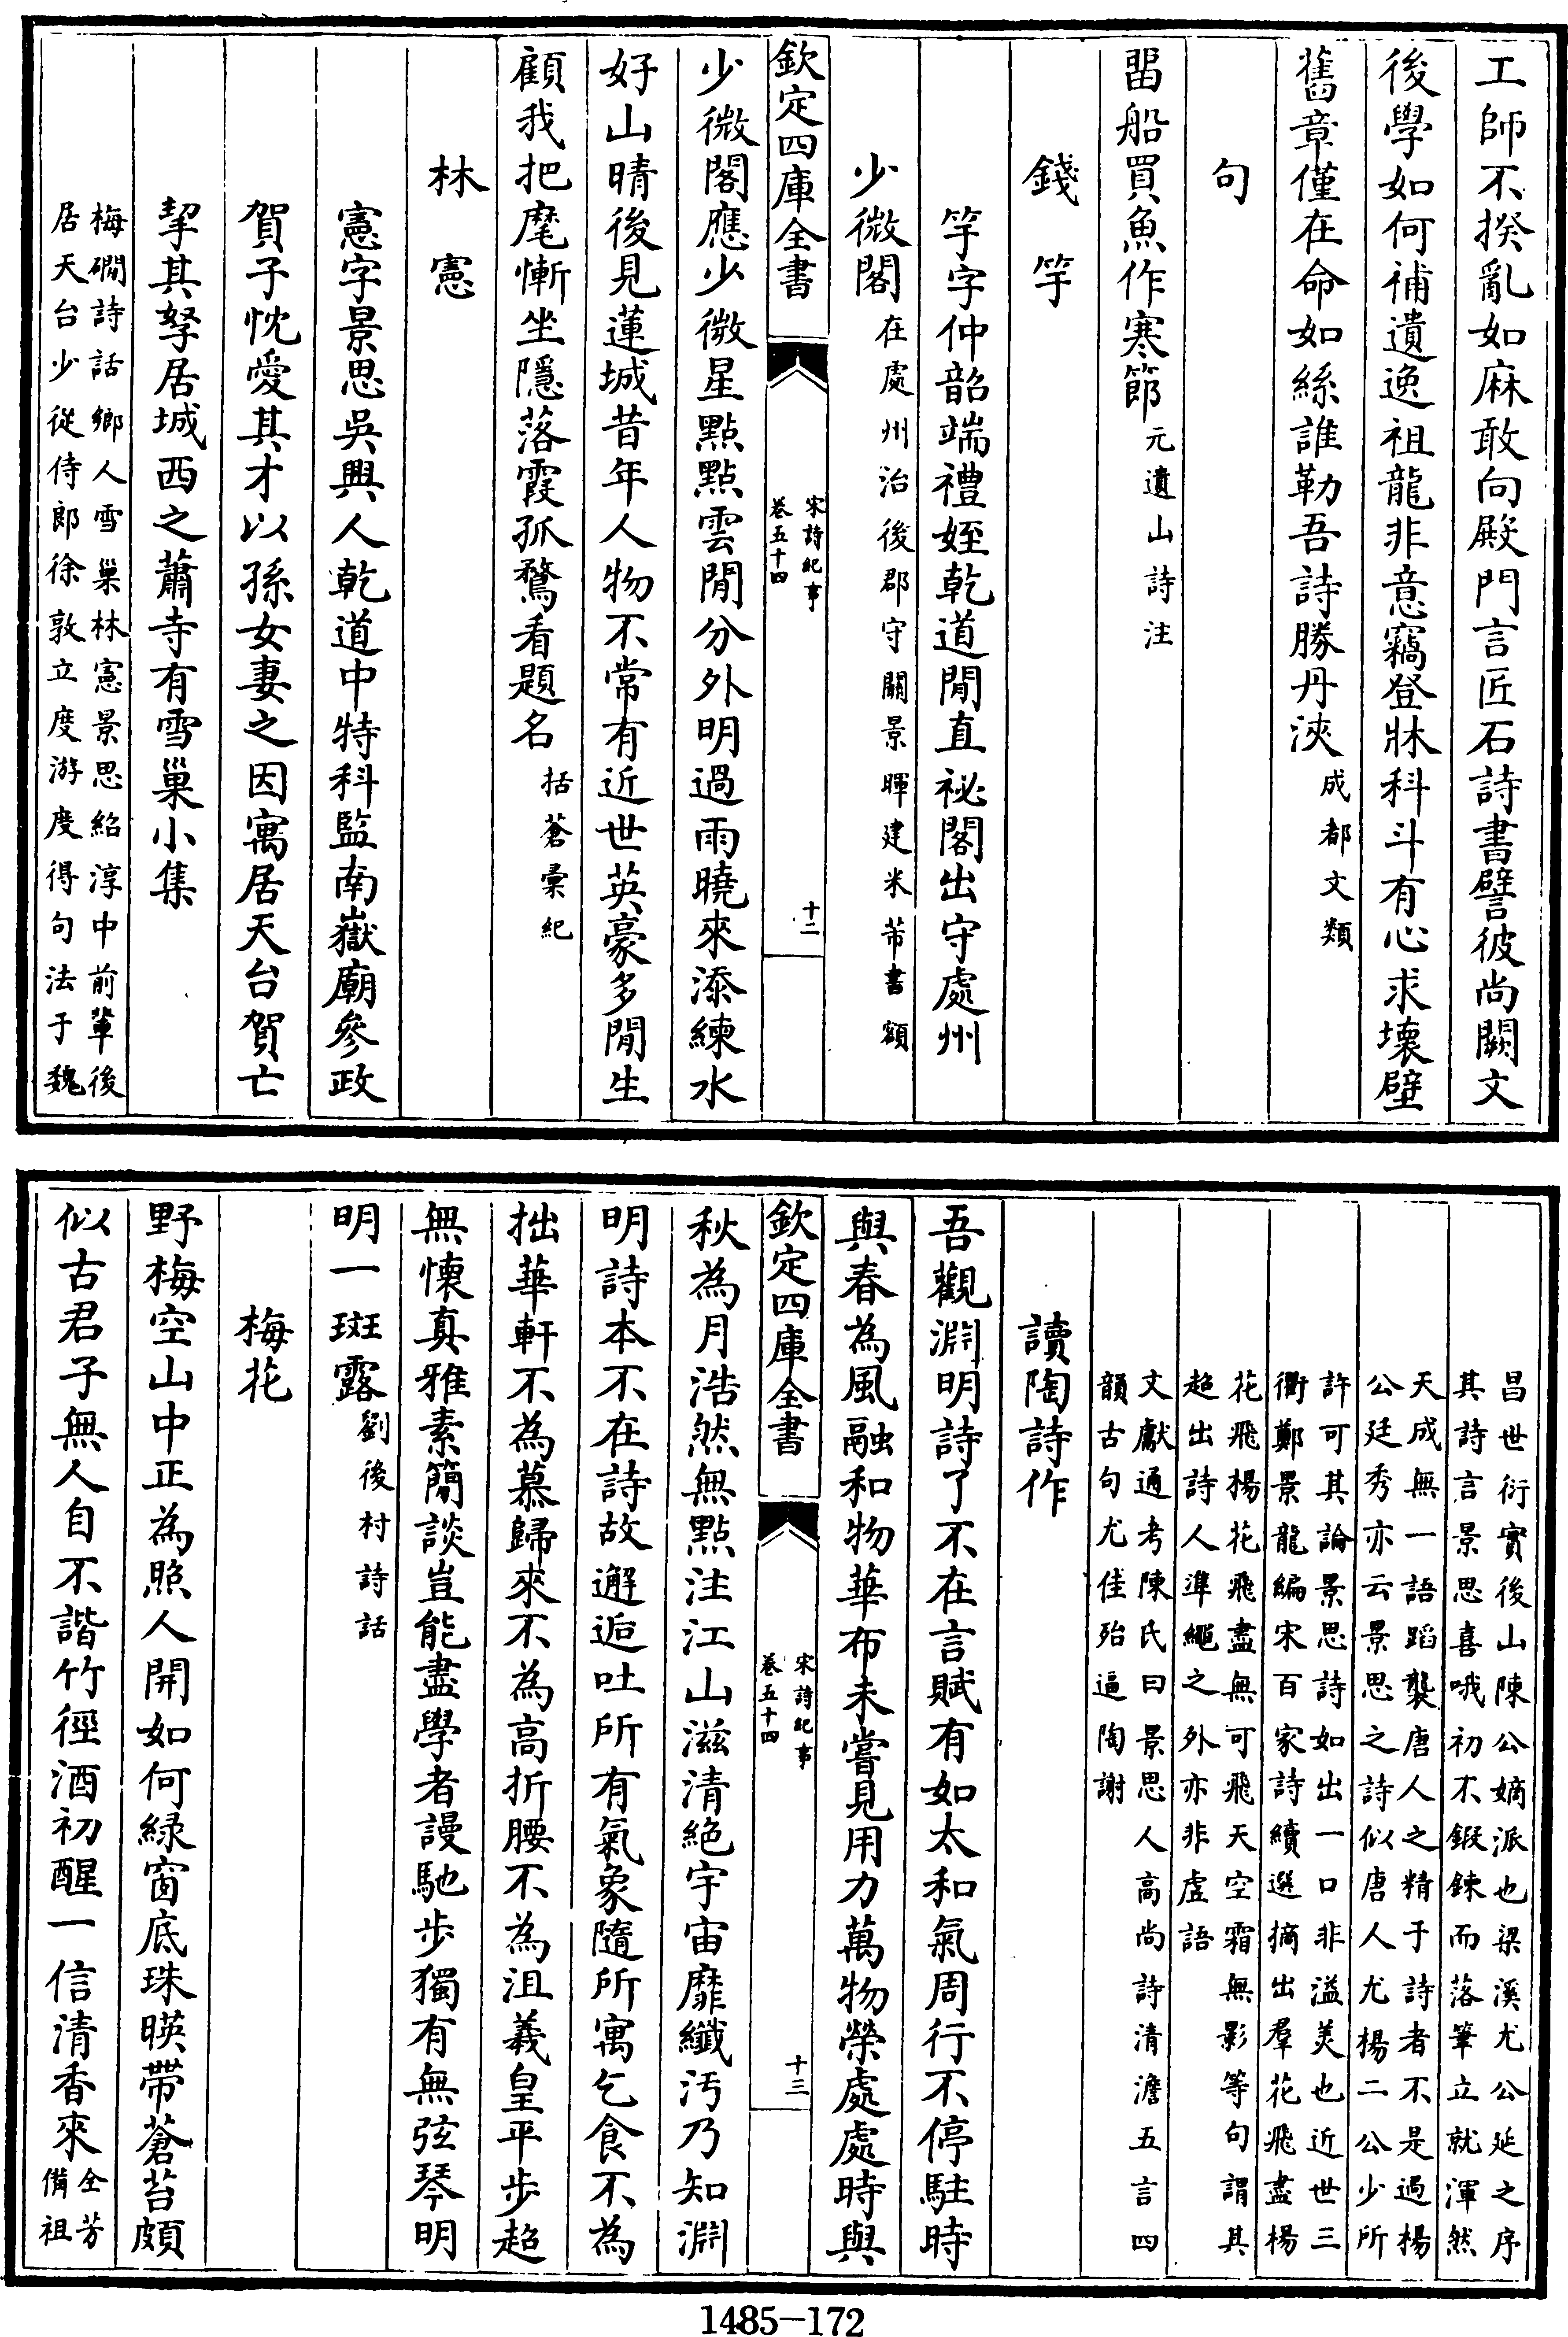 工師不揆亂如麻敢向殿門言匠石詩書譬彼尚闕文
後學如何補遺逸祖龍非意竊登牀科斗有心求壞壁
舊章僅在命如絲誰勒吾詩勝丹浹成都文類
句
畱船買魚作寒節元遺山詩注
錢竽
竽字仲韶端禮姪乾道閒直祕閣出守處州
少微閣在處州治後郡守關景暉建米芾書額
欽定四庫全書
宋詩紀事
卷五十四
十二
少微閣應少微星點點雲閒分外明過雨曉來添練水
好山晴後見蓮城昔年人物不常有近世英豪多閒生
顧我把麾慚坐隱落霞孤鶩看題名括蒼彙紀
林憲
憲字景思吳興人乾道中特科監南嶽廟參政
賀子忱愛其才以孫女妻之因寓居天台賀亡
挈其孥居城西之蕭寺有雪巢小集
梅磵詩話鄉人雪巢林憲景思紹淳中前輩後
居天台少從侍郎徐敦立度游度得句法于魏
昌世衍實後山陳公嫡派也梁溪尤公延之序
其詩言景思喜哦初不鍛鍊而落筆立就渾然
天成無一語蹈襲唐人之精于詩者不是過楊
公廷秀亦云景思之詩似唐人尤楊二公少所
許可其論景思詩如出一口非溢美也近世三
衢鄭景龍編宋百家詩續選摘出羣花飛盡楊
花飛楊花飛盡無可飛天空霜無影等句謂其
超出詩人準繩之外亦非虛語
文獻通考陳氏曰景思人高尚詩清澹五言四
韻古句尤佳殆逼陶謝
讀陶詩作
吾觀淵明詩了不在言賦有如太和氣周行不停駐時
與春為風融和物華布未嘗見用力萬物榮處處時與
欽定四庫全書
宋詩紀事
卷五十四
十三
秋為月浩然無點注江山滋清絶宇宙靡纖汚乃知淵
明詩本不在詩故邂逅吐所有氣象隨所寓乞食不為
拙華軒不為慕歸來不為高折腰不為沮羲皇平步超
無懷真雅素簡談豈能盡學者謾馳步獨有無弦琴明
明一斑露劉後村詩話
梅花
野梅空山中正為照人開如何綠窗底珠暎帶蒼苔頗
似古君子無人自不諧竹徑酒初醒一信清香來全芳
備祖
1485-172